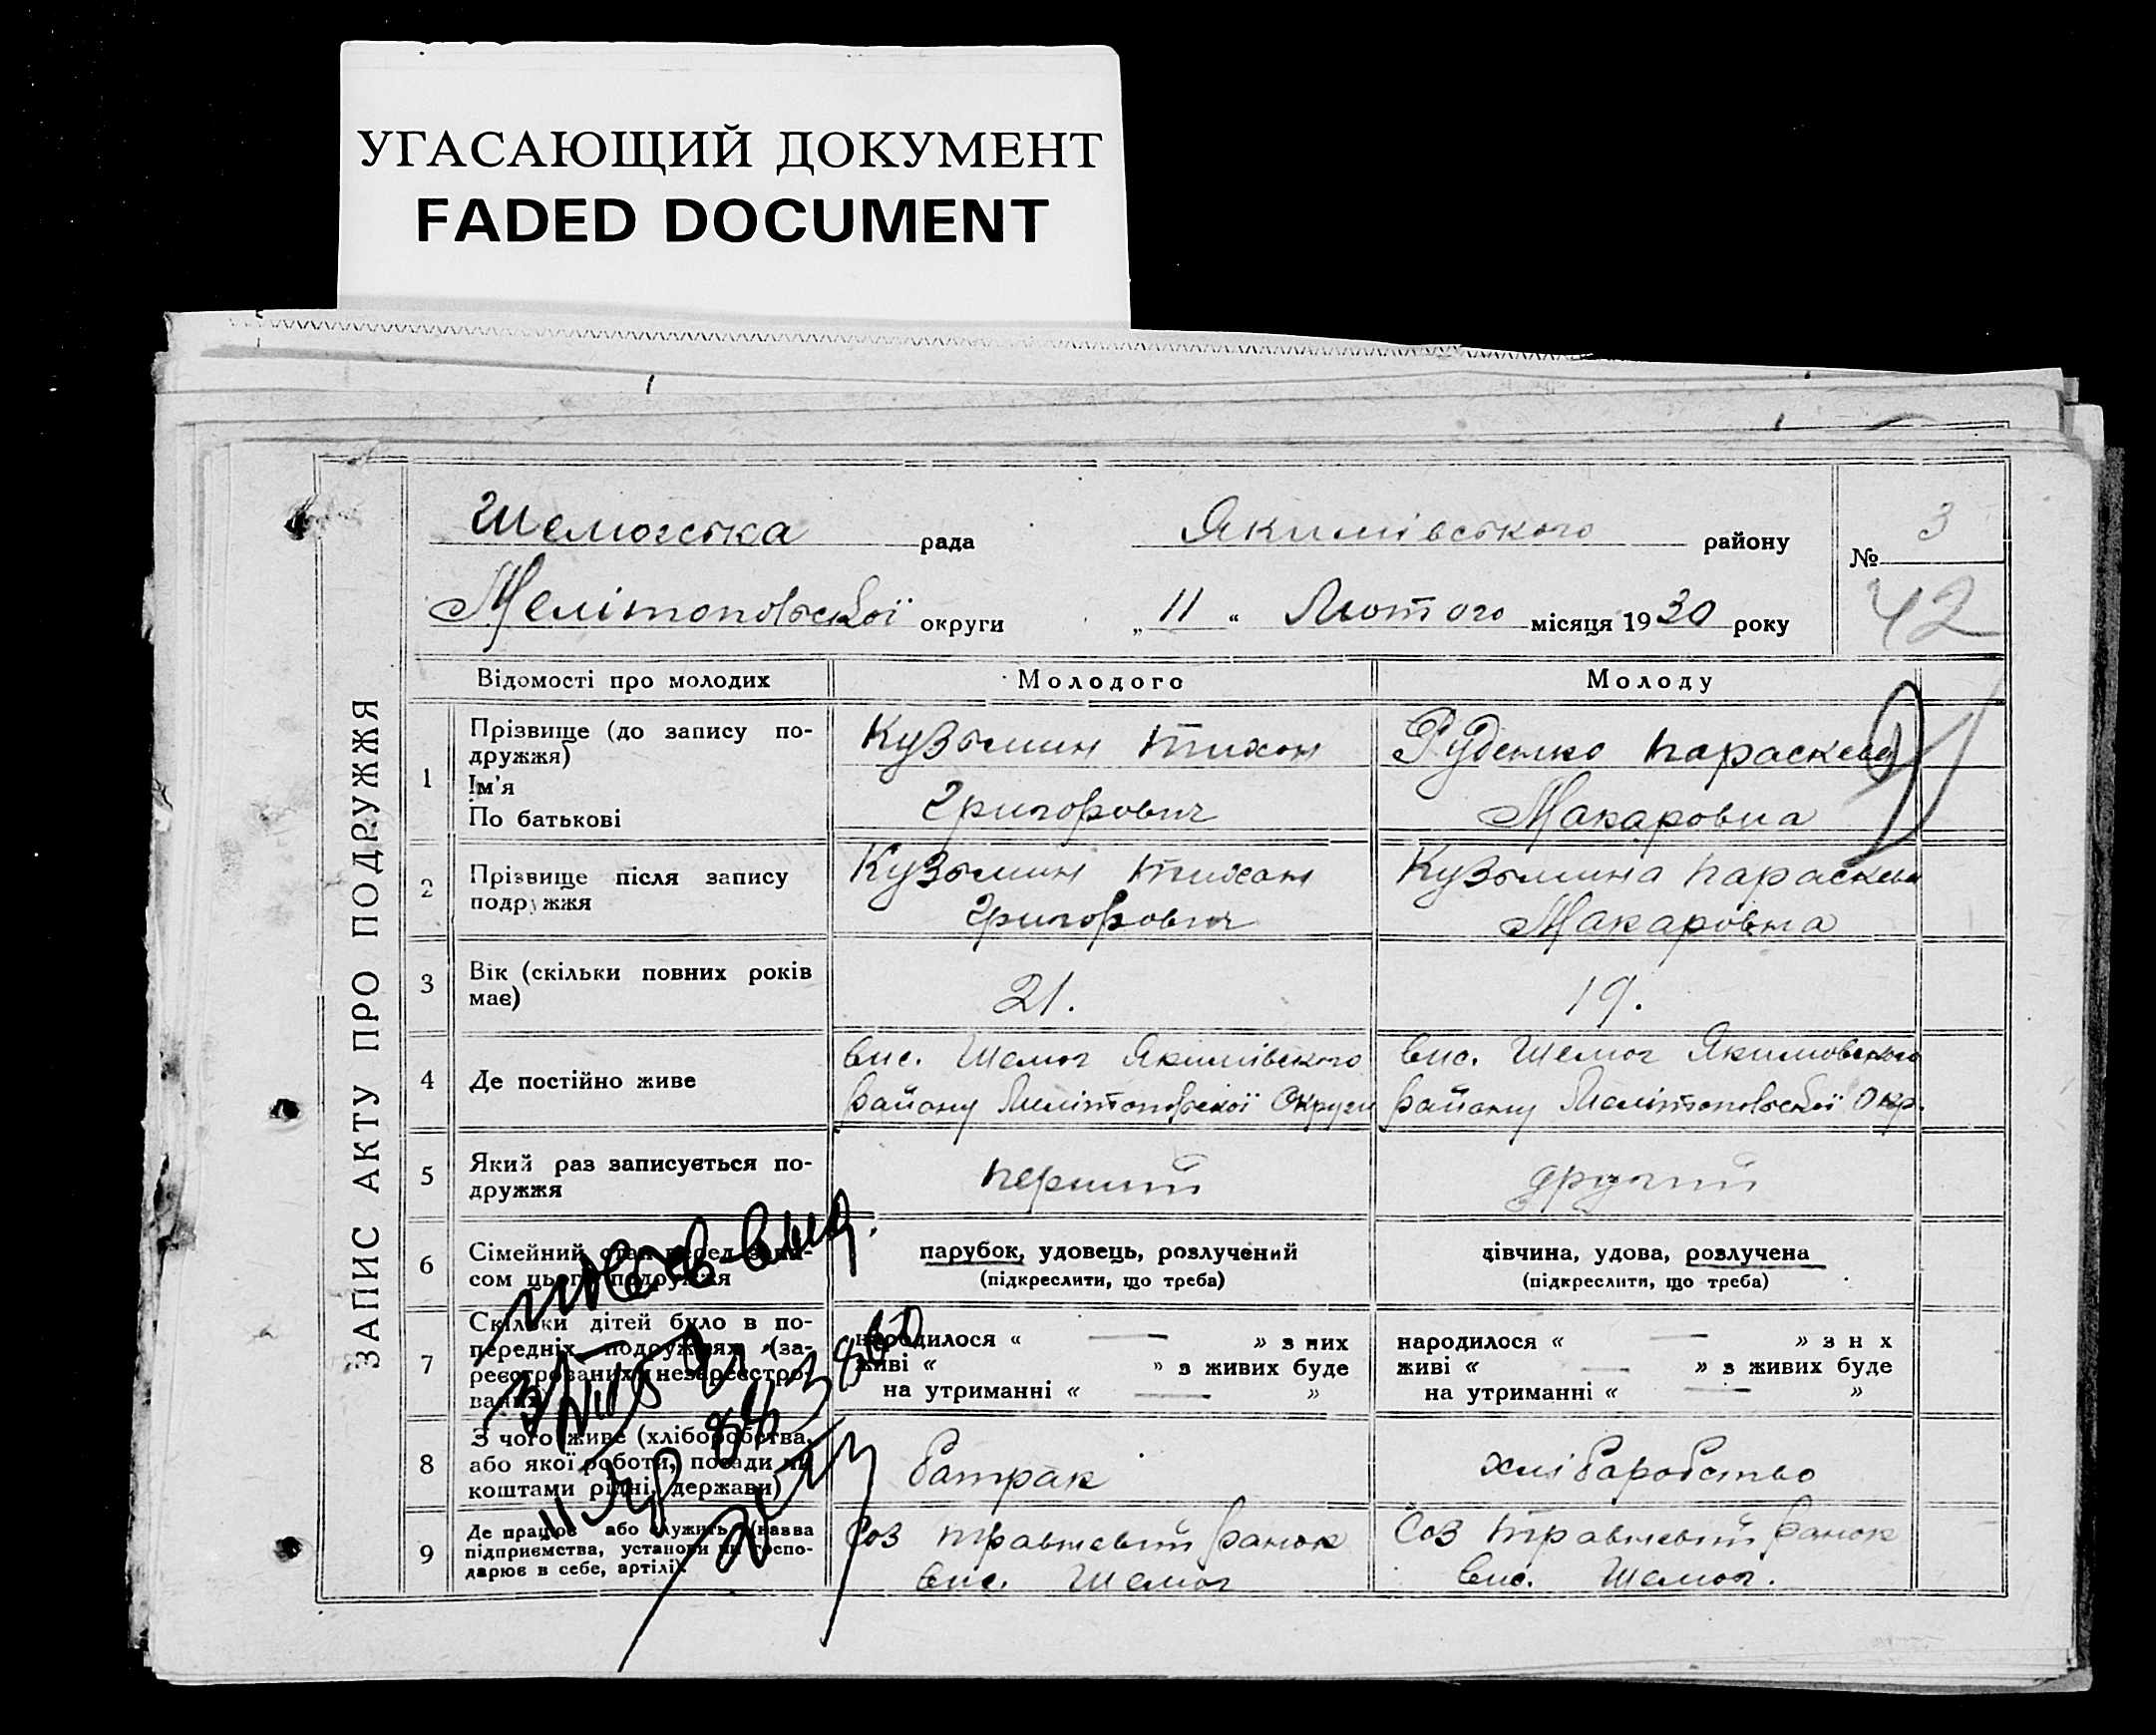 УГАСАЮЩИЙ ДОКУМЕНТ
FADED DOCUMENT
ЗАПИС АКТУ ПРО ПОДРУЖЖЯ
Шемогська рада Якимівського району № 3
Мелітопольскої округи „ 11 “ Лютого місяця 1930 року 42
Відомості про молодих Молодого Молоду
1 Прізвище (до запису по-
дружжя)
Ім'я
По батькові
Кузьмин Тихон
Григорович
Руденко Параскева
Макаровна
2 Прізвище після запису
подружжя
Кузьмин Тихон
Григорович
Кузьмина Параскева
Макаровна
3 Вік (скільки повних років
має)
21. 19.
4 Де постійно живе
вис. Шемог Якимівского
району Мелітопольскої Округи
вис. Шемог Якимовского
району Мелітопольскої Окр.
5 Який раз записується по-
дружжя
перший другий
6 Сімейний стан перед запи-
сом цього подружжя
парубок, удовець, розлучений
(підкреслити, що треба)
дівчина, удова, розлучена
(підкреслити, що треба)
7 Скільки дітей було в по-
передніх подружжях (за-
реєстрованих і незареєстро-
ваних)
народилося « — » з них
живі « » з живих буде
на утриманні « — »
народилося « — » з н х
живі « — » з живих буде
на утриманні « — »
8 З чого живе (хліборобства,
або якої роботи, посади чи
коштами рідні, держави)
батрак хліборобство
9 Де працює або служить (назва
підприємства, установи чи госпо-
дарює в себе, артілі).
Соз Травневий ранок
вис. Шемог
Соз Травневий ранок
вис. Шемог.